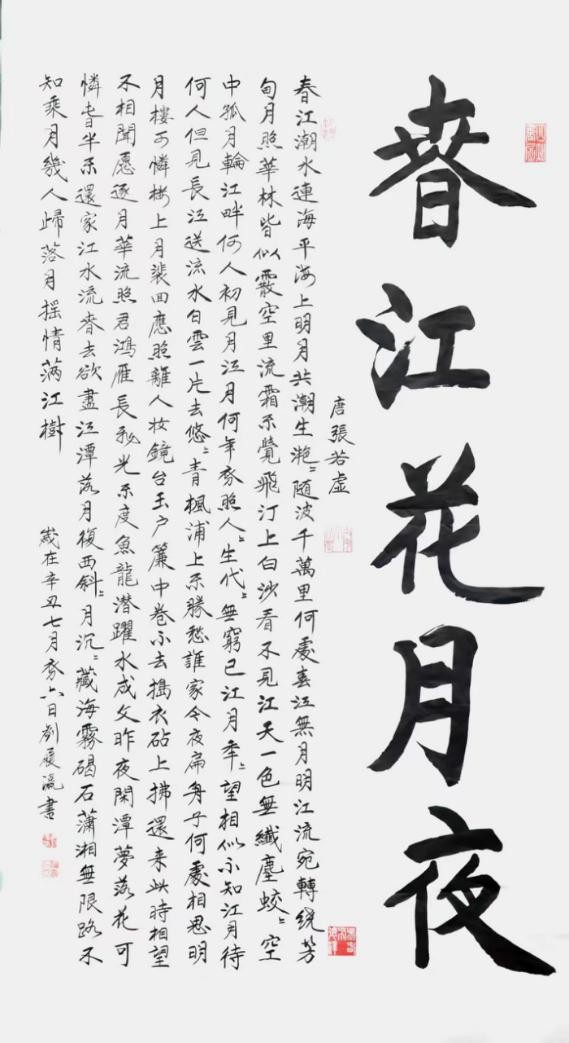 春江花月夜
唐張若虛
春江潮水連海平海上明月共潮生灔〻隨波千萬里何處春江無月明江流宛轉繞芳
甸月照華林皆似霰空里流霜不覺飛汀上白沙看不見江天一色無纖塵皎〻空
中孤月輪江畔何人初見月江月何年初照人〻生代〻無窮已江月年〻望相似不知江月待
何人但見長江送流水白雲一片去悠〻青楓浦上不勝愁誰家今夜扁舟子何處相思明
月樓可憐樓上月裴回應照離人妝鏡台玉戶簾中卷不去搗衣砧上拂還来此時相望
不相聞愿逐月華流照君鴻雁長飛光不度魚龍潛躍水成文昨夜閑潭夢落花可
憐春半不還家江水流春去欲盡江潭落月復西斜〻月沉〻藏海霧碣石瀟湘無限路不
知乘月幾人歸落月搖情滿江樹
歲在辛丑七月初六日劉書